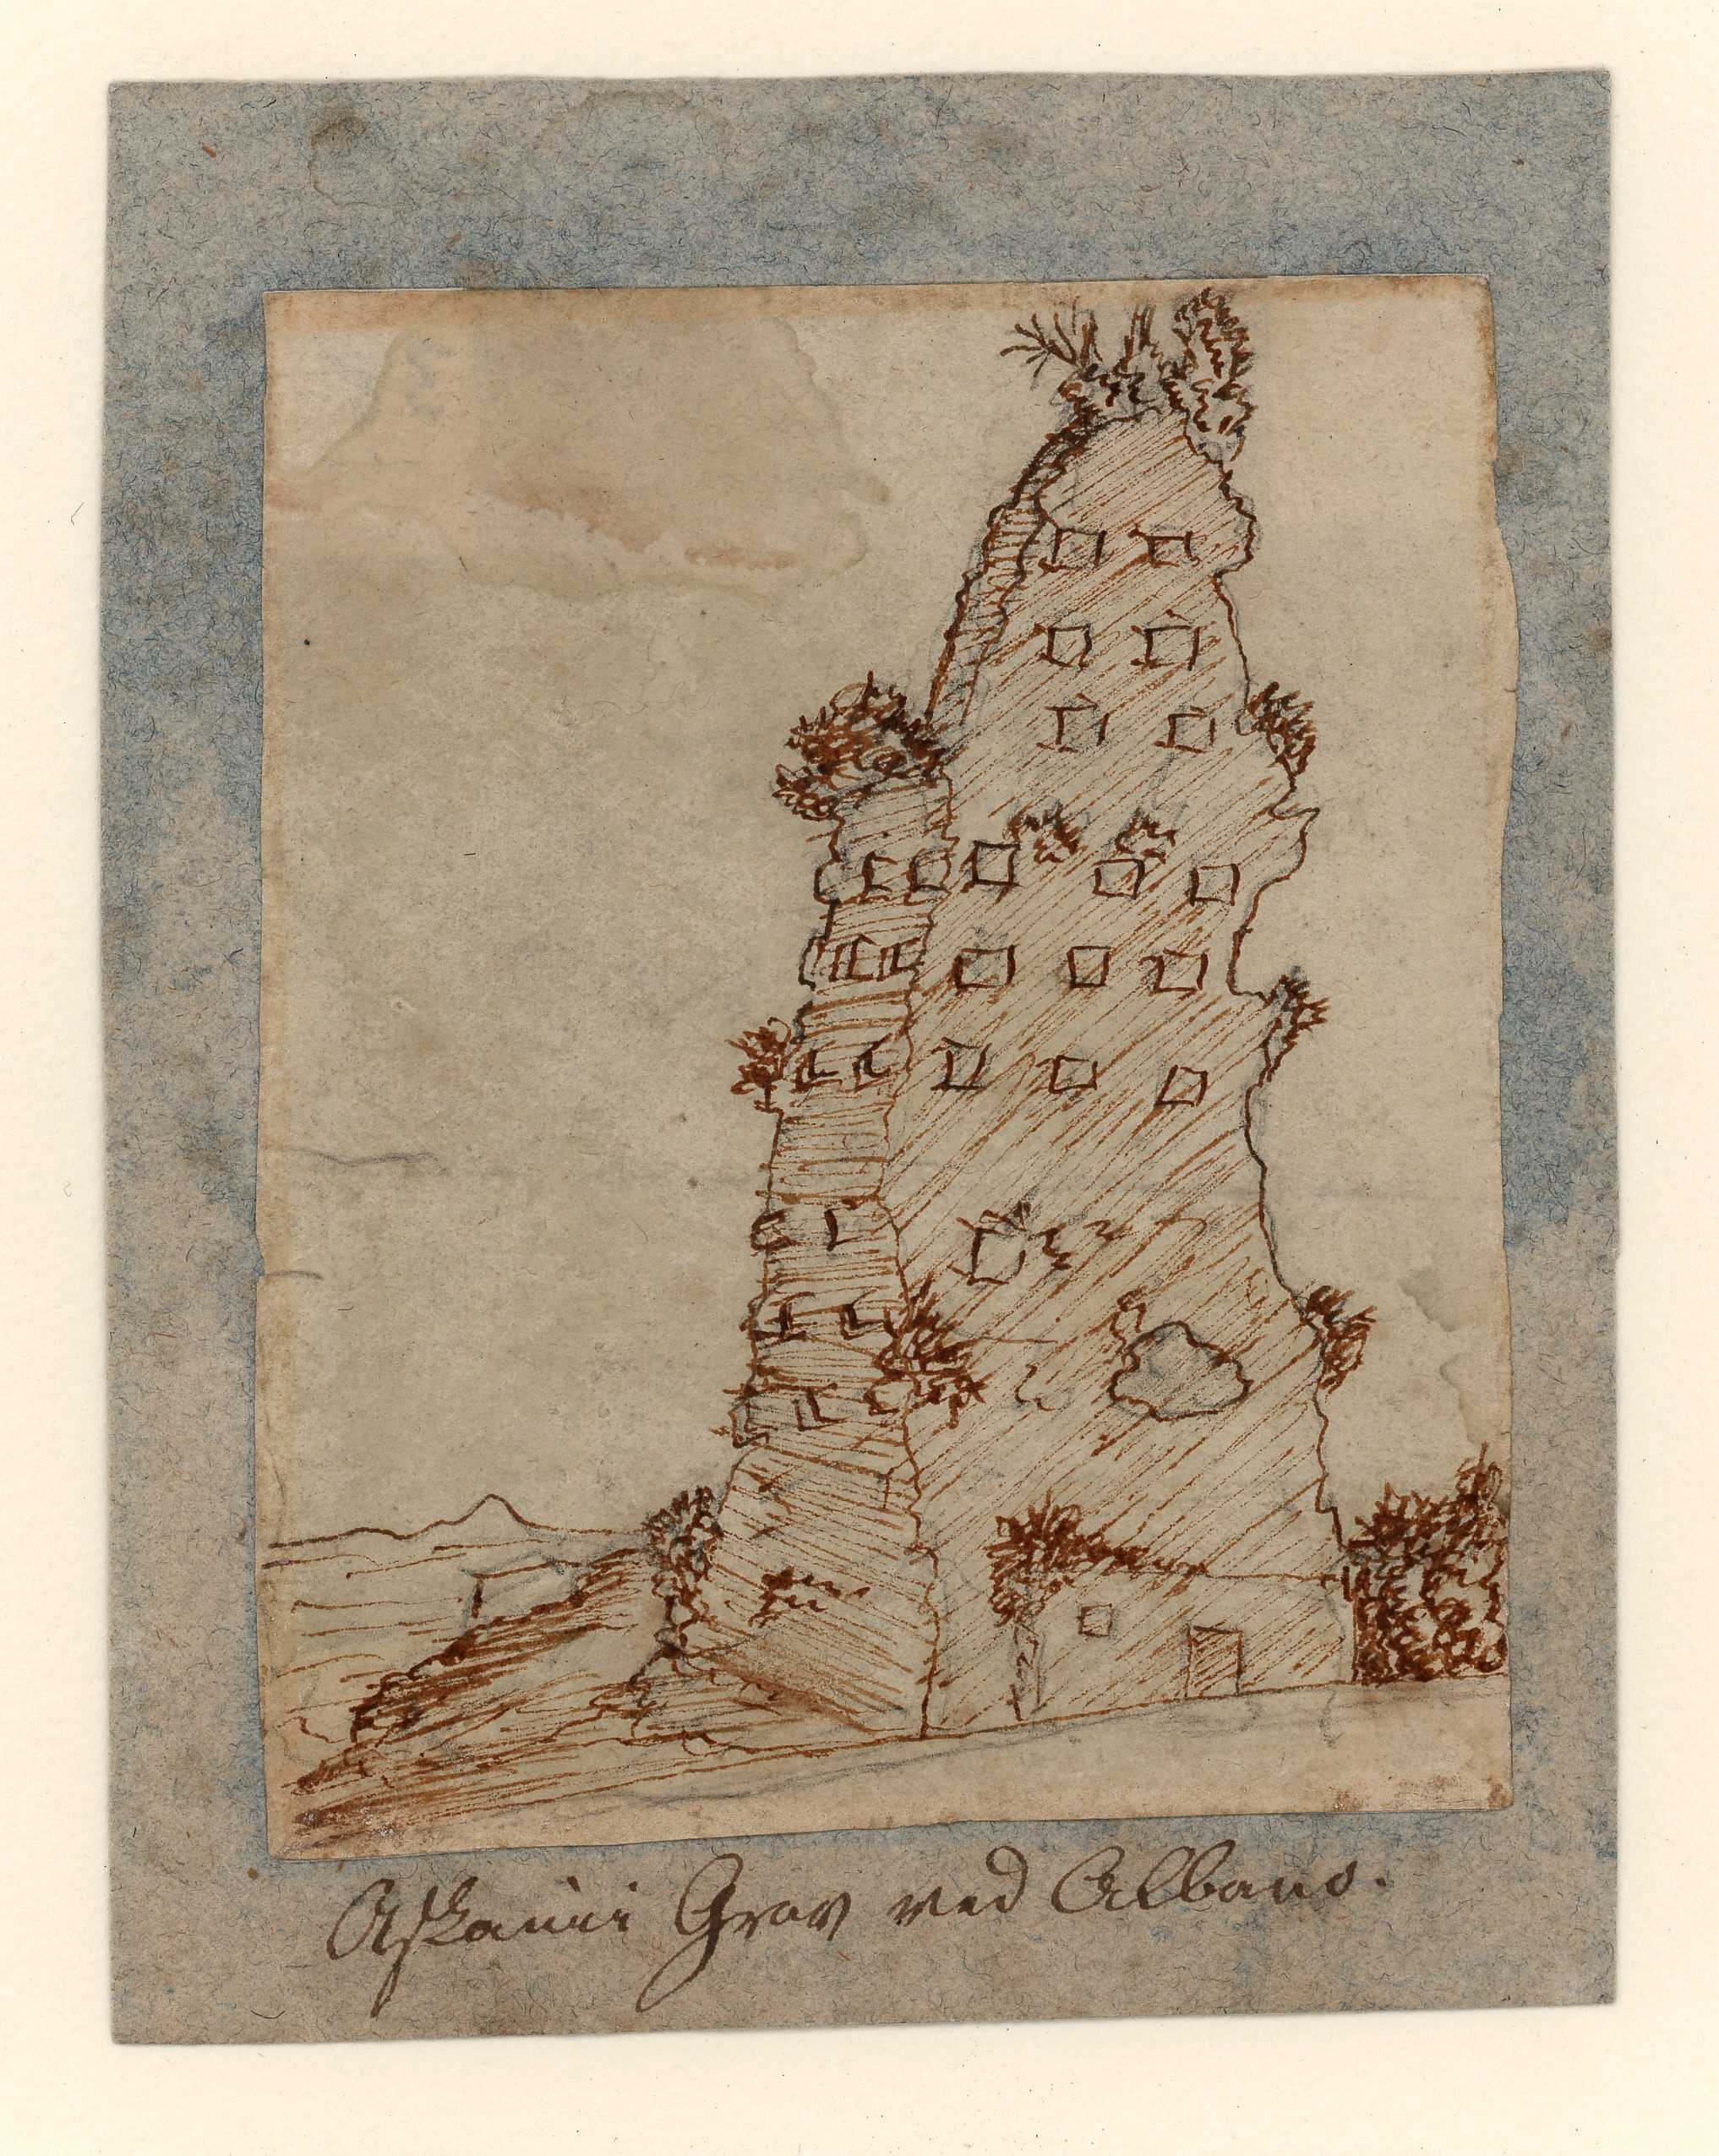 Askanii Grav ved Albano.